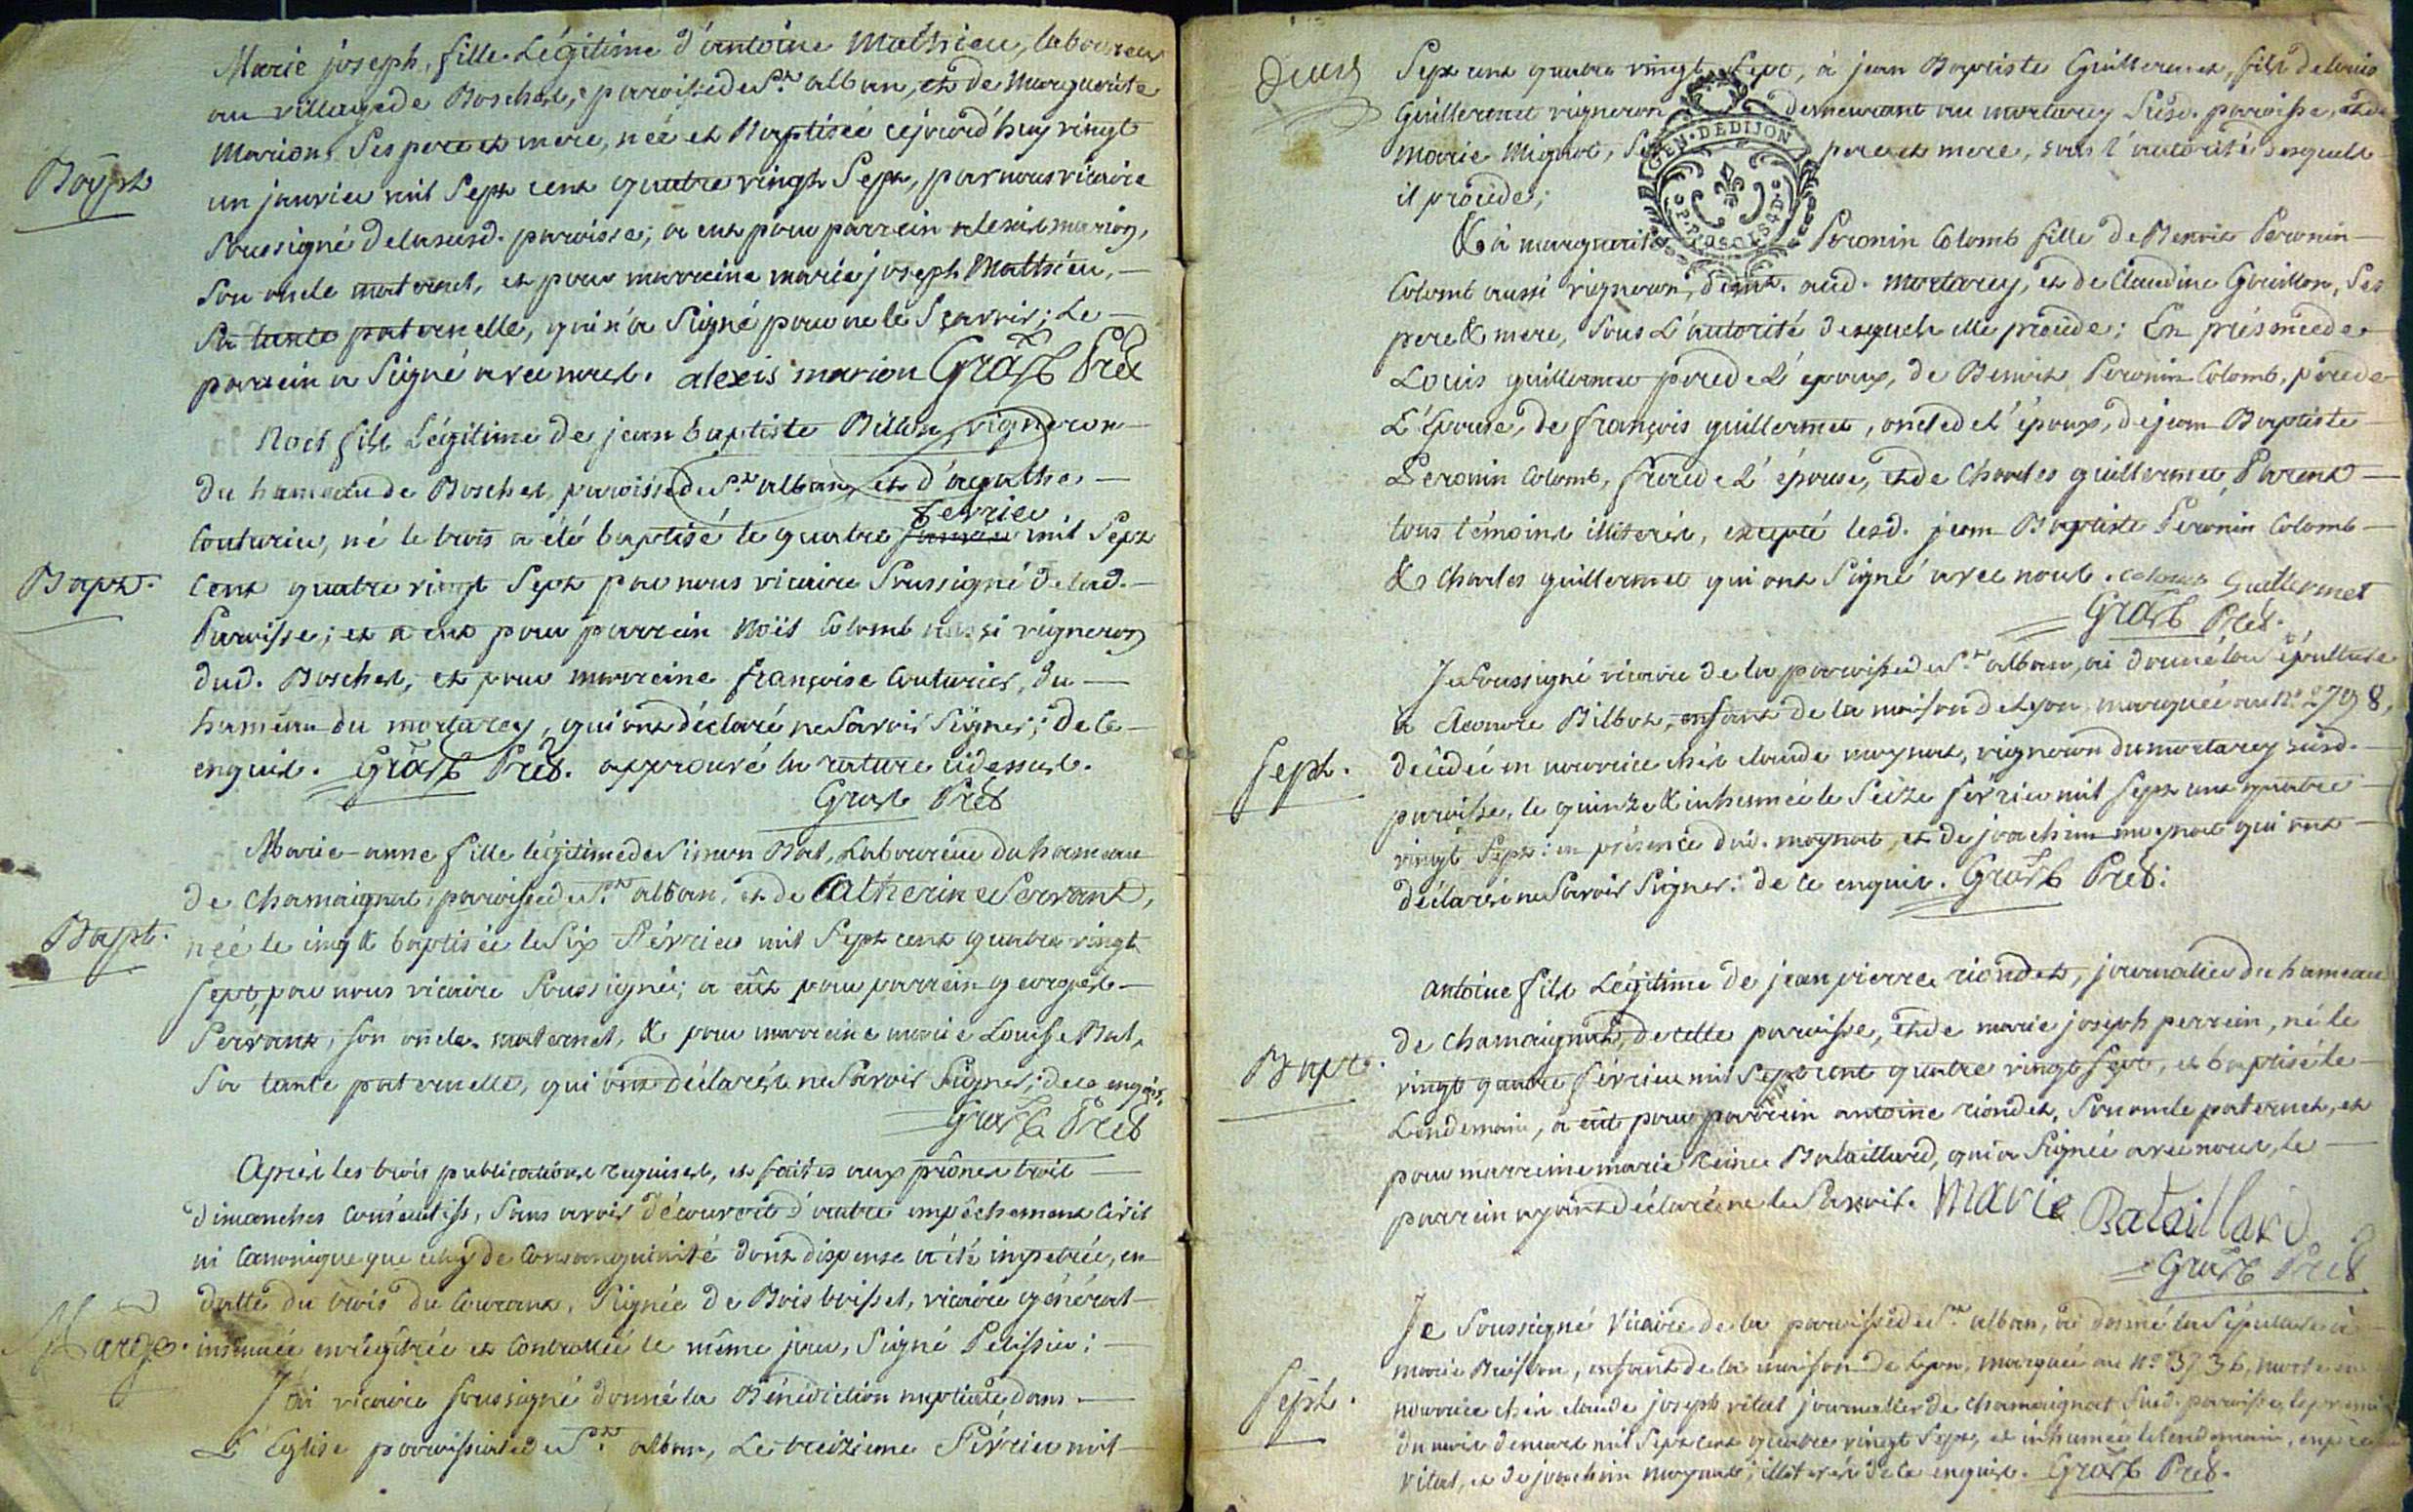 Marie joseph, fille Légitime d'antoine Mathieu, laboureur
au village de Boschet, paroisse de St. alban, et de Marguerite
Marion Ses pere et mere, née et Baptiseé cejourd'huy vingt
Bapt.
un janvier mil Sept cent quatre vingt Sept, par nous vicaire
Soussigné de la susd. paroisse; a eut pour parrein alexis marion,
Son oncle maternel, et pour marreine marie joseph Mathieu,
Sa tante paternelle, qui n'a Signé pour ne le Sçavoir; Le
parrein a Signé avec nous. alexis marion Graft Prêt
Noël fils Légitime de jean baptiste Billon, vigneron
du hameau de Boschet, paroisse de St. alban, et d'agathe
fevrier
Couturier, né le trois a été baptisé le quatre mil Sept
Bapt.
cent quatre vingt Sept par nous vicaire Soussigné de lad.
Paroisse; et a eut pour parrein Noël Colomb aussi vigneron
dud. Boschet, et pour marreine françoise Couturier, du
hameau du mortarey, qui ont déclaré ne Savoir Signer; de ce
enquis. Graft Prêt. approuvé la rature cidessus.
Graft Prêt
Marie-anne fille légitime de Simon Bat, Laboureur du hameau
de chamaignat, paroisse de St. alban, et de Catherine Servant,
Bapt.
née le cinq & baptisée le Six Février mil Sept cent quatre vingt
Sept, par nous vicaire Soussigné; a eût pour parrein georges
Servant, Son oncle maternel, & pour marreine marie Louise Bat,
Sa tante paternelle, qui ont déclarés ne Savoir Signer; de ce enquis,
Graft Prêt
Après les trois publications requises, et faites aux prônes trois
dimanches consécutifs, Sans avoir découvert d'autre empêchement Civil
ni Canonique que celuy de Consanguinité dont dispense a été impetrée, en
datte du trois du Courant, Signée de Boisboisset, vicaire général
Mariage.
insinuée enregîtrée et Controllée le même jour, Signé Pelissier;
J'ai vicaire Soussigné donné la Bénédiction nuptiale dans
L'Eglise paroissiale de St. alban, Le treizieme Février mil
Sept cent quatre vingt Sept, à jean Baptiste Guillermet, fils de louis
Guillermet vigneron demeurant au mortarey Susd. paroisse, et de
GEN. DE DIJON
marie Mignot, Ses pere et mere, sous l'autorité desquels
il procède;
& à marguerite Peronin Colomb fille de Benoit Peronin
Colomb aussi vigneron, demt. aud. mortarey, et de Claudine Gouillon, Ses
pere & mere, Sous L'autorité desquels elle procède; En présence de
Louis guillermet pere de L'époux, de Benoit Peronin Colomb, pere de
L'Épouse, de françois guillermet, oncle de L'époux, de jean Baptiste
Peronin Colomb, frere de L'épouse, et de Charles guillermet Parent
tous témoins illiterés, excepté lesd. jean Baptiste Peronin Colomb
& Charles guillermet qui ont Signé avec nous. colomb Guillermet
Graft Prêt.
Je Soussigné vicaire de la paroisse de St. alban, ai donné la Sépulture
à Eleonore Bilbot, enfant de la maison de Lyon, marquée au N° 2798,
Sept.
décédée en nourrice chés claude moynat, vigneron du mortarey susd.
paroisse, le quinze & inhumée le Seize fevrier mil Sept cent quatre
vingt Sept: en présence dud. moynat, et de joachim moynat qui ont
déclaré ne Savoir Signer: de ce enquis. Graft Prêt:
antoine fils Légitime de jean pierre riondet, journalier du hameau
de chamaignat, de cette paroisse, et de marie joseph perrein, né le
Bapt.
vingt quatre février mil Sept cent quatre vingt Sept, et baptisé le
Lendemain, a eût pour parrein antoine riondet, Son oncle paternel, et
pour marreine marie Reine Bataillard, qui a Signée avec nous, le
parrein ayant déclaré ne le Savoir. Marie Bataillard
Graft Prêt
Je Soussigné Vicaire de la paroisse de St. alban, ai donné la Sépulture à
marie Buisson, enfant de la maison de Lyon, marquée au N° 3736, morte en
Sept.
nourrice chés claude joseph vital journalier de chamaignat Susd. paroisse, le premier
du mois de mars mil Sept cent quatre vingt Sept, et inhumée le lendemain, en
vital, et de joachim moynat; illiterés de ce enquis. Graft Prêt.